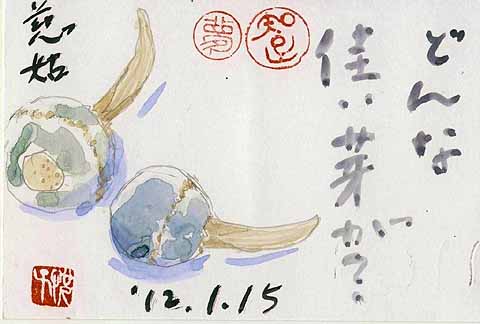 どんな
佳い芽が?
慈姑
'12.1.15